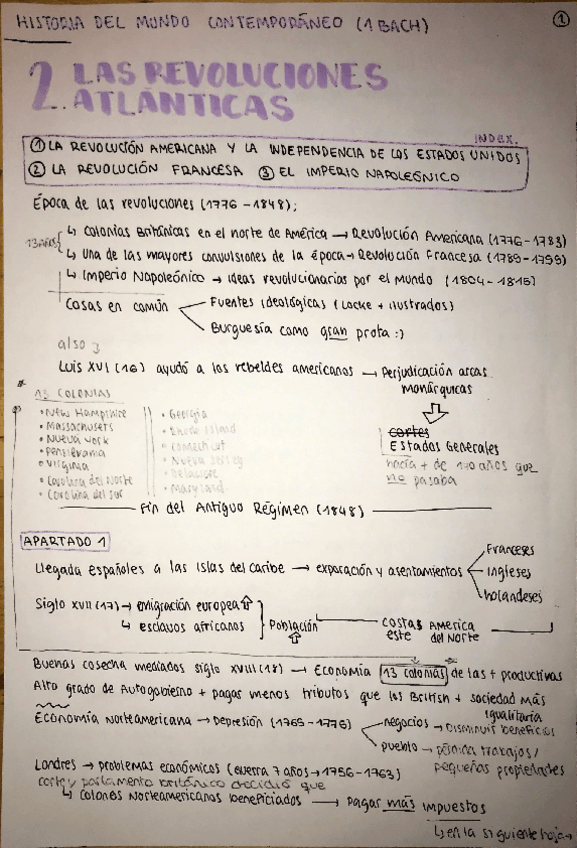 HISTORIA DEL MUNDO CONTEMPORÁNEO (1 BACH) ①
2. LAS REVOLUCIONES
ATLÁNTICAS
INDEX.
① LA REVOLUCIÓN AMERICANA Y LA INDEPENDENCIA DE LOS ESTADOS UNIDOS
② LA REVOLUCIÓN FRANCESA ③ EL IMPERIO NAPOLEÓNICO
Época de las revoluciones (1776 - 1848);
13 años { ↳ colonias Británicas en el norte de América → Revolución Americana (1776 - 1783)
↳ Una de las mayores convulsiones de la época → Revolución Francesa (1789 - 1799)
↳ Imperio Napoleónico → ideas revolucionarias por el mundo (1804 - 1815)
Cosas en común
Fuentes ideológicas (Locke + ilustrados)
Burguesía como gran prota :)
also 3
Luis XVI (16) ayudó a los rebeldes americanos → Perjudicación arcas
monárquicas
* 13 COLONIAS
• New Hampshire
• Massachusets
• Nueva York
• Pensilvania
• Virginia
• Carolina del Norte
• Carolina del sur
• Georgia
• Rhode Island
• Conneticut
• Nueva Jersey
• Delaware
• Maryland
cortes
Estados Generales
hacía + de 170 años que
no pasaba
Fin del Antiguo Régimen (1848)
APARTADO 1
Llegada españoles a las Islas del caribe → exporación y asentamientos
Franceses
Ingleses
holandeses
Siglo XVII (17) → emigración europea ⇧
↳ esclavos africanos
} Población ⇧
costas este América del Norte
Buenas cosecha mediados siglo XVIII (18) → Economía 13 colonias de las + productivas
Alto grado de Autogobierno + pagar menos tributos que los British + sociedad más
igualitaria
Economía Norteamericana → Depresión (1765 - 1776)
negocios → Disminuir beneficios
pueblo → pérdida trabajos /
pequeñas propiedades
Londres → problemas económicos (Guerra 7 años → 1756 - 1763)
corte y parlamento británico decidió que
↳ colonos Norteamericanos beneficiados → pagar más impuestos
↳ en la siguiente hoja →